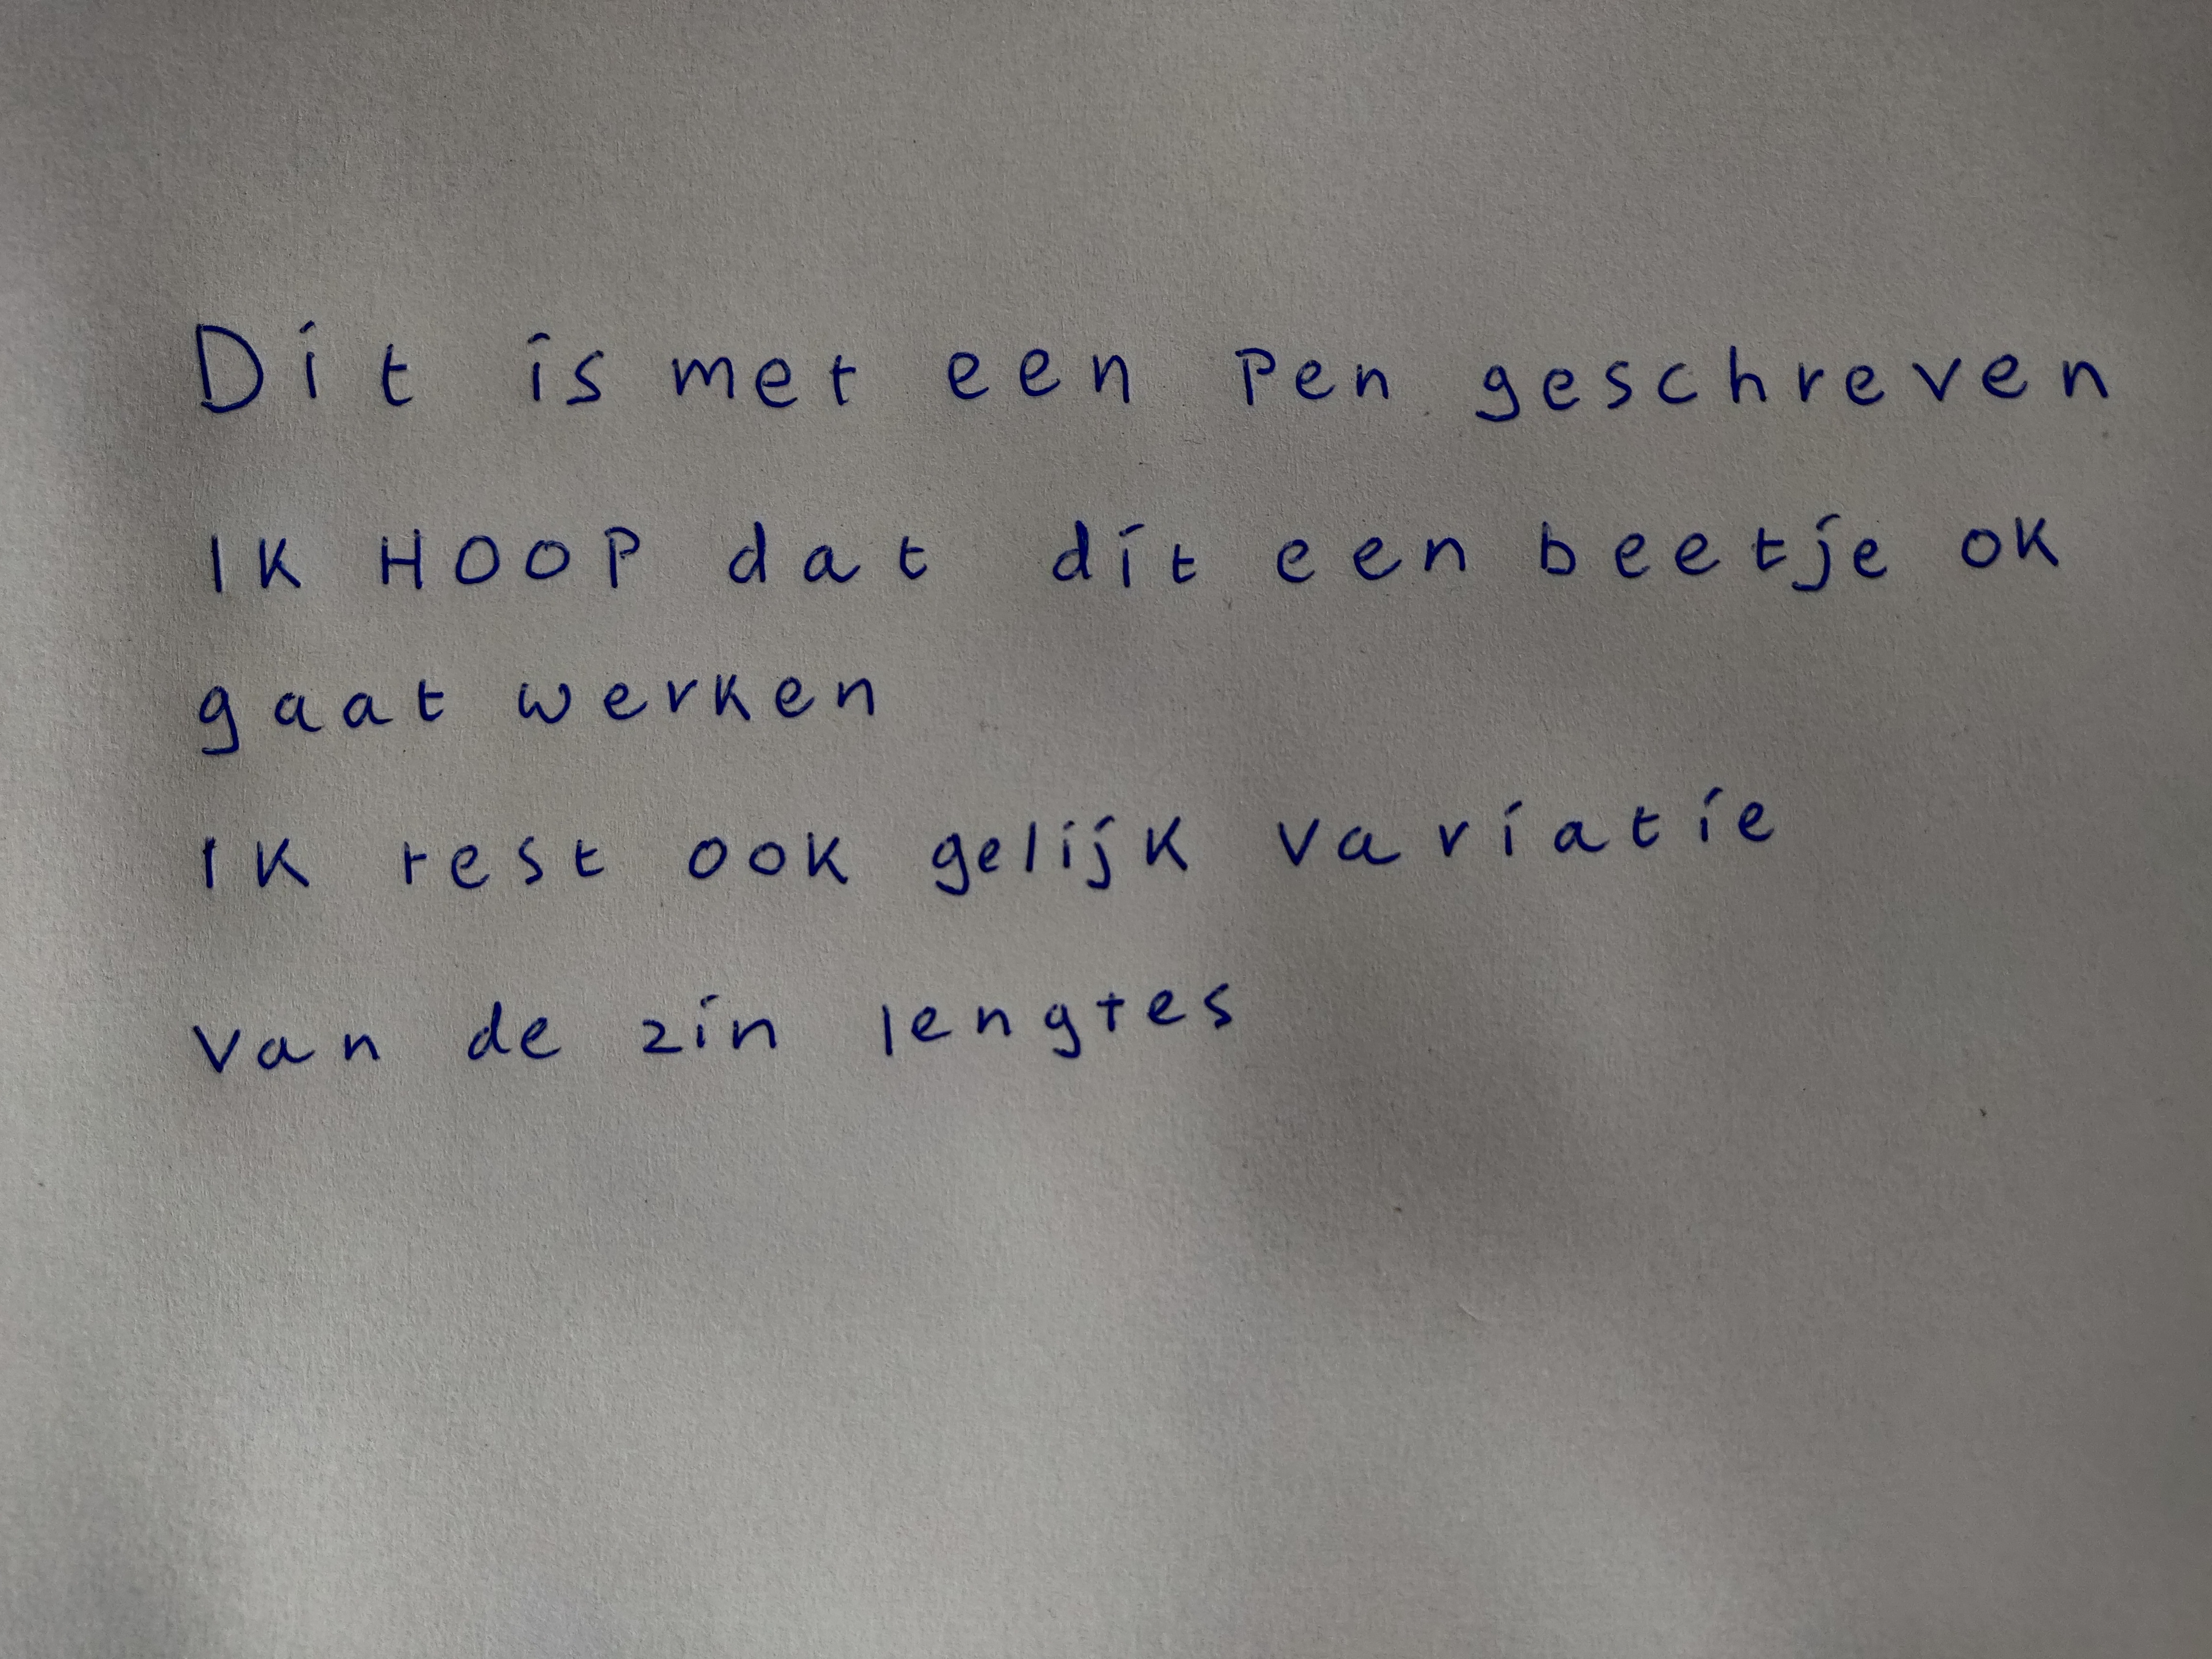 Dit is met een Pen geschreven
IK HOOP dat dit een beetje ok
gaat werken
IK rest ook gelijk variatie
van de zin lengtes